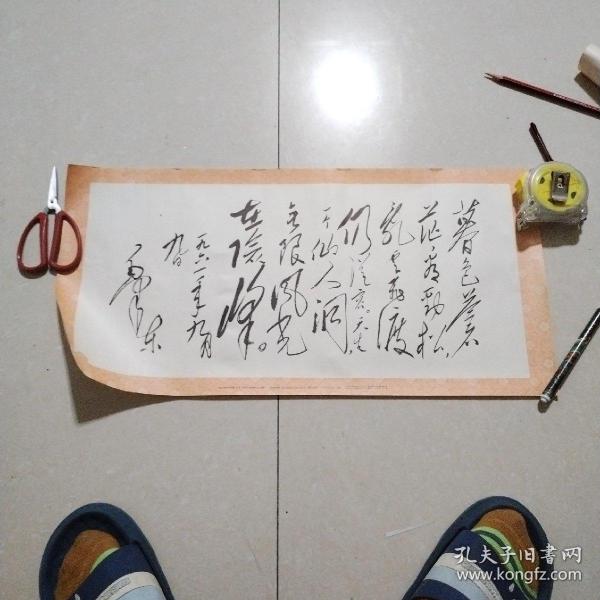 暮色蒼
茫看勁松,
乱云飞渡
仍從容。天生
一个仙人洞
无限風光
在險峰。
一九六一年九月
九日
毛泽东
孔夫子旧书网
www.kongfz.com